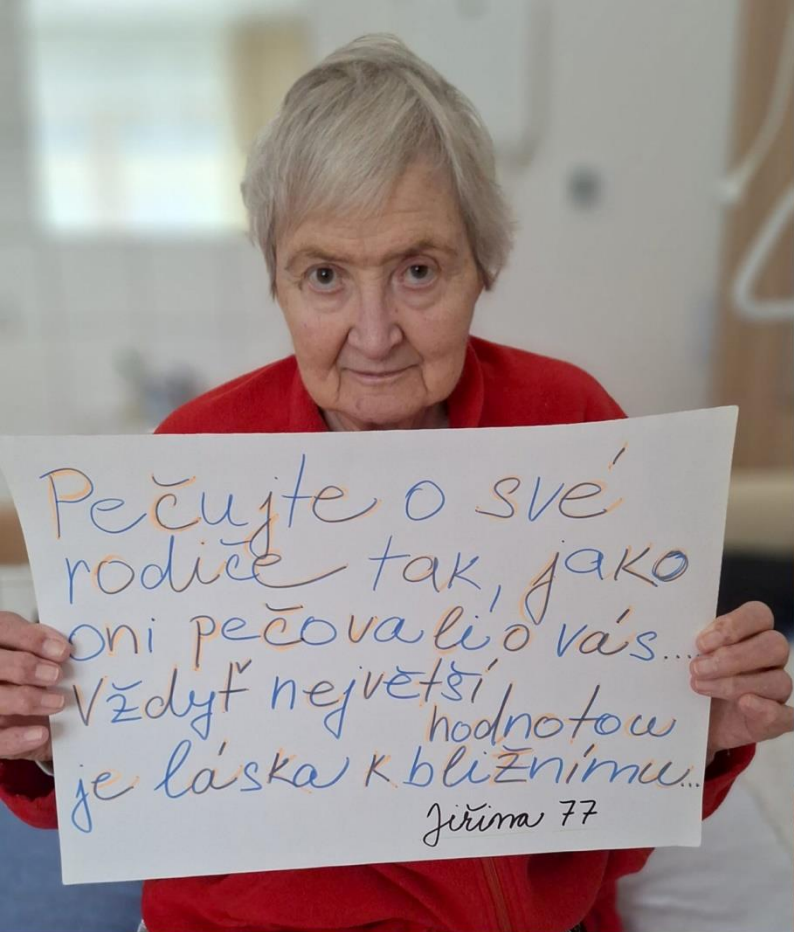 Pečujte o své
rodiče tak, jako
oni pečovali o vás...
Vždyť největší
hodnotou
je láska k bližnímu...
Jiřina 77